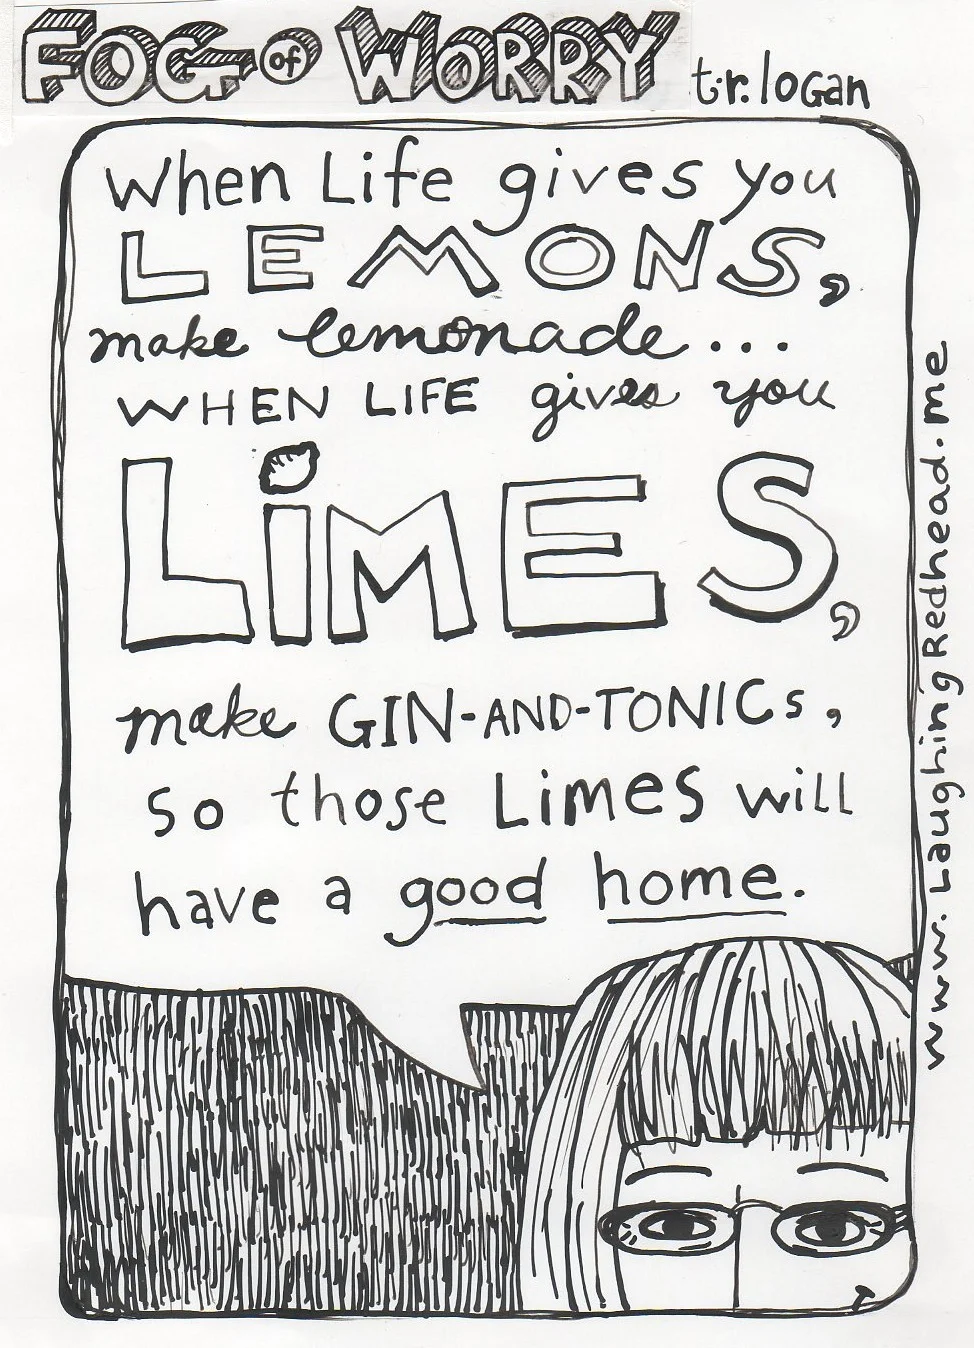 FOG of WORRY t.r. logan
When Life gives you
LEMONS,
make lemonade...
WHEN LIFE gives you
LiMES,
make GIN-AND-TONICs,
so those Limes will
have a good home.
www.LaughingRedhead.me